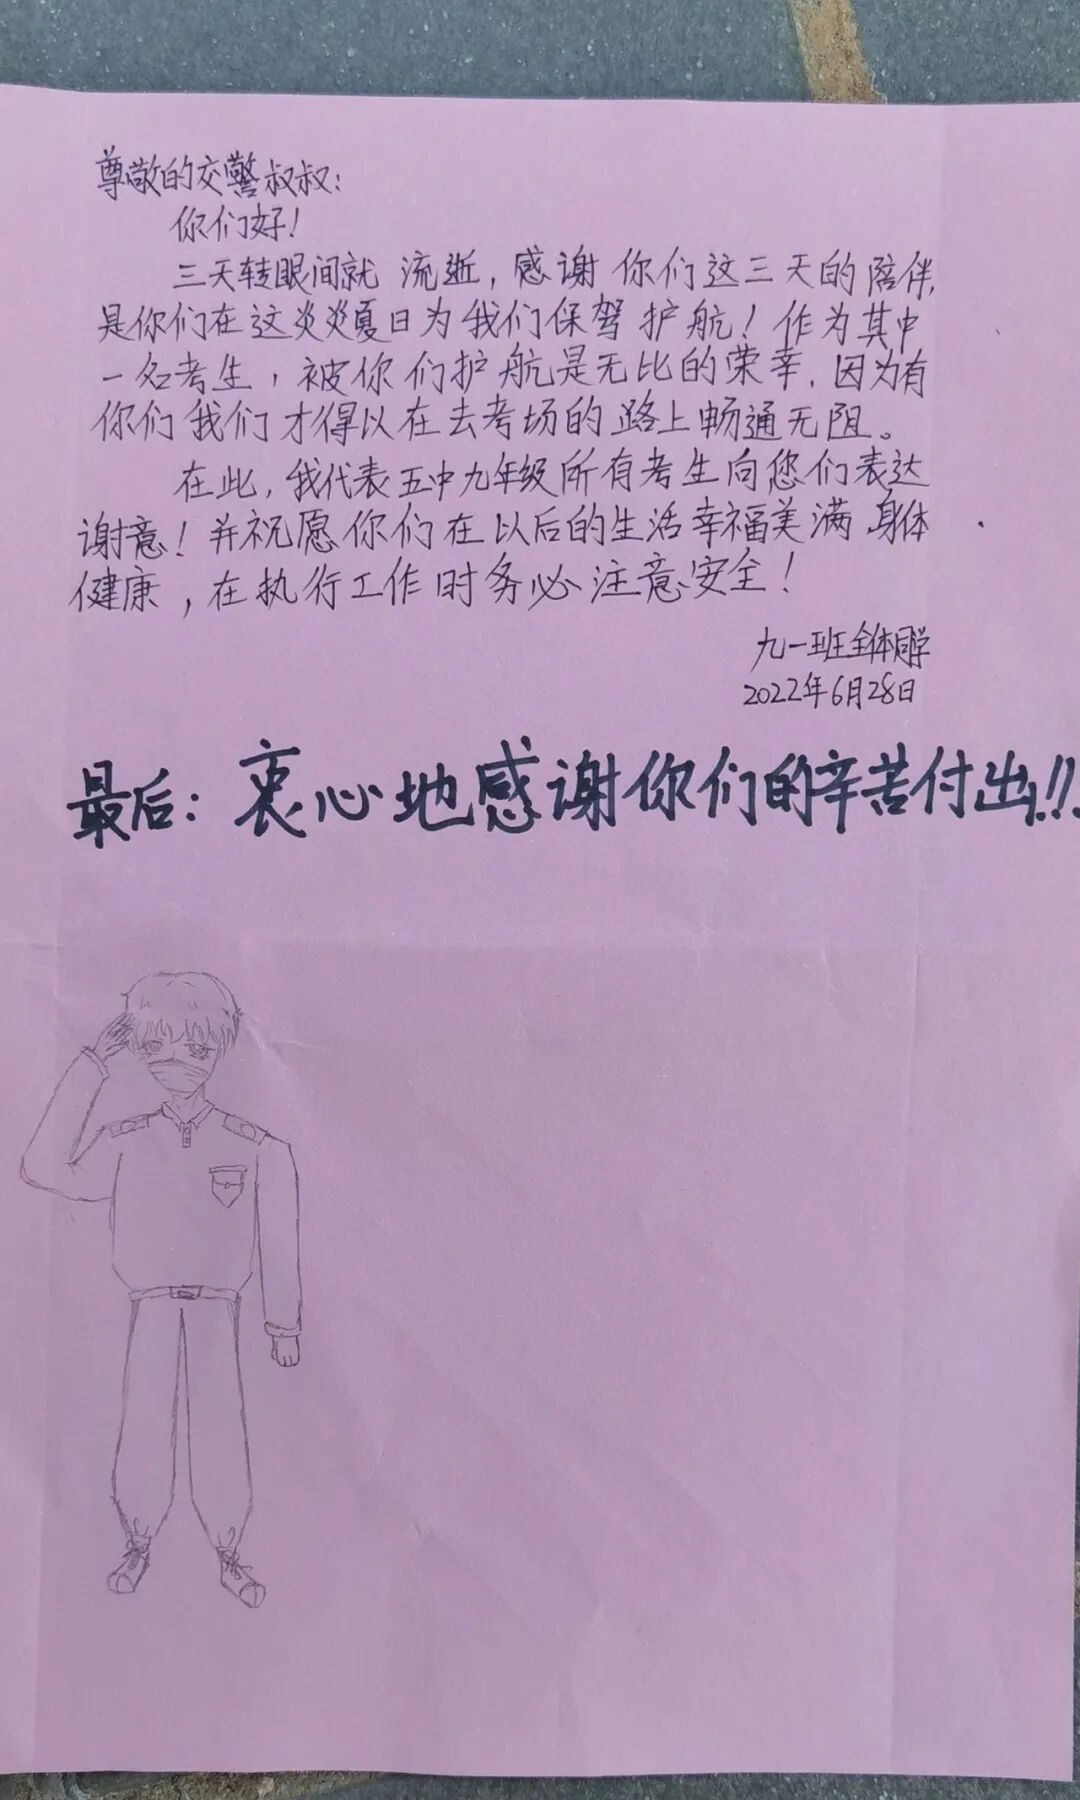 尊敬的交警叔叔：
你们好！
三天转眼间就流逝，感谢你们这三天的陪伴，
是你们在这炎炎夏日为我们保驾护航！作为其中
一名考生，被你们护航是无比的荣幸，因为有
你们我们才得以在去考场的路上畅通无阻。
在此，我代表五中九年级所有考生向您们表达
谢意！并祝愿你们在以后的生活幸福美满身体
健康，在执行工作时务必注意安全！
九一班全体同学
2022年6月28日
最后：衷心地感谢你们的辛苦付出!!!